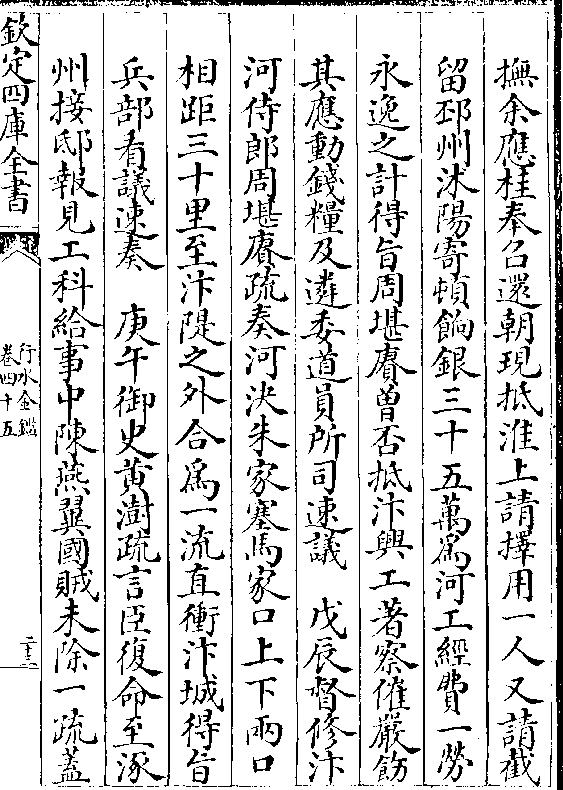 撫余應桂奉召還朝現抵淮上請擇用一人又請截
留邳州沭陽寄頓餉銀三十五萬爲河工經費一勞
永逸之計得旨周堪賡曽否抵汴興工著察催嚴飭
其應動錢糧及遴委道員所司速議　戊辰督修汴
河侍郎周堪賡疏奏河決朱家寨馬家口上下兩口
相距三十里至汴隄之外合爲一流直衝汴城得旨
兵部看議速奏　庚午御史黄澍疏言臣復命至涿
州接邸報見工科給事中陳燕翼國賊未除一疏蓋
欽定四庫全書
行水金鑑
卷四十五
二十三